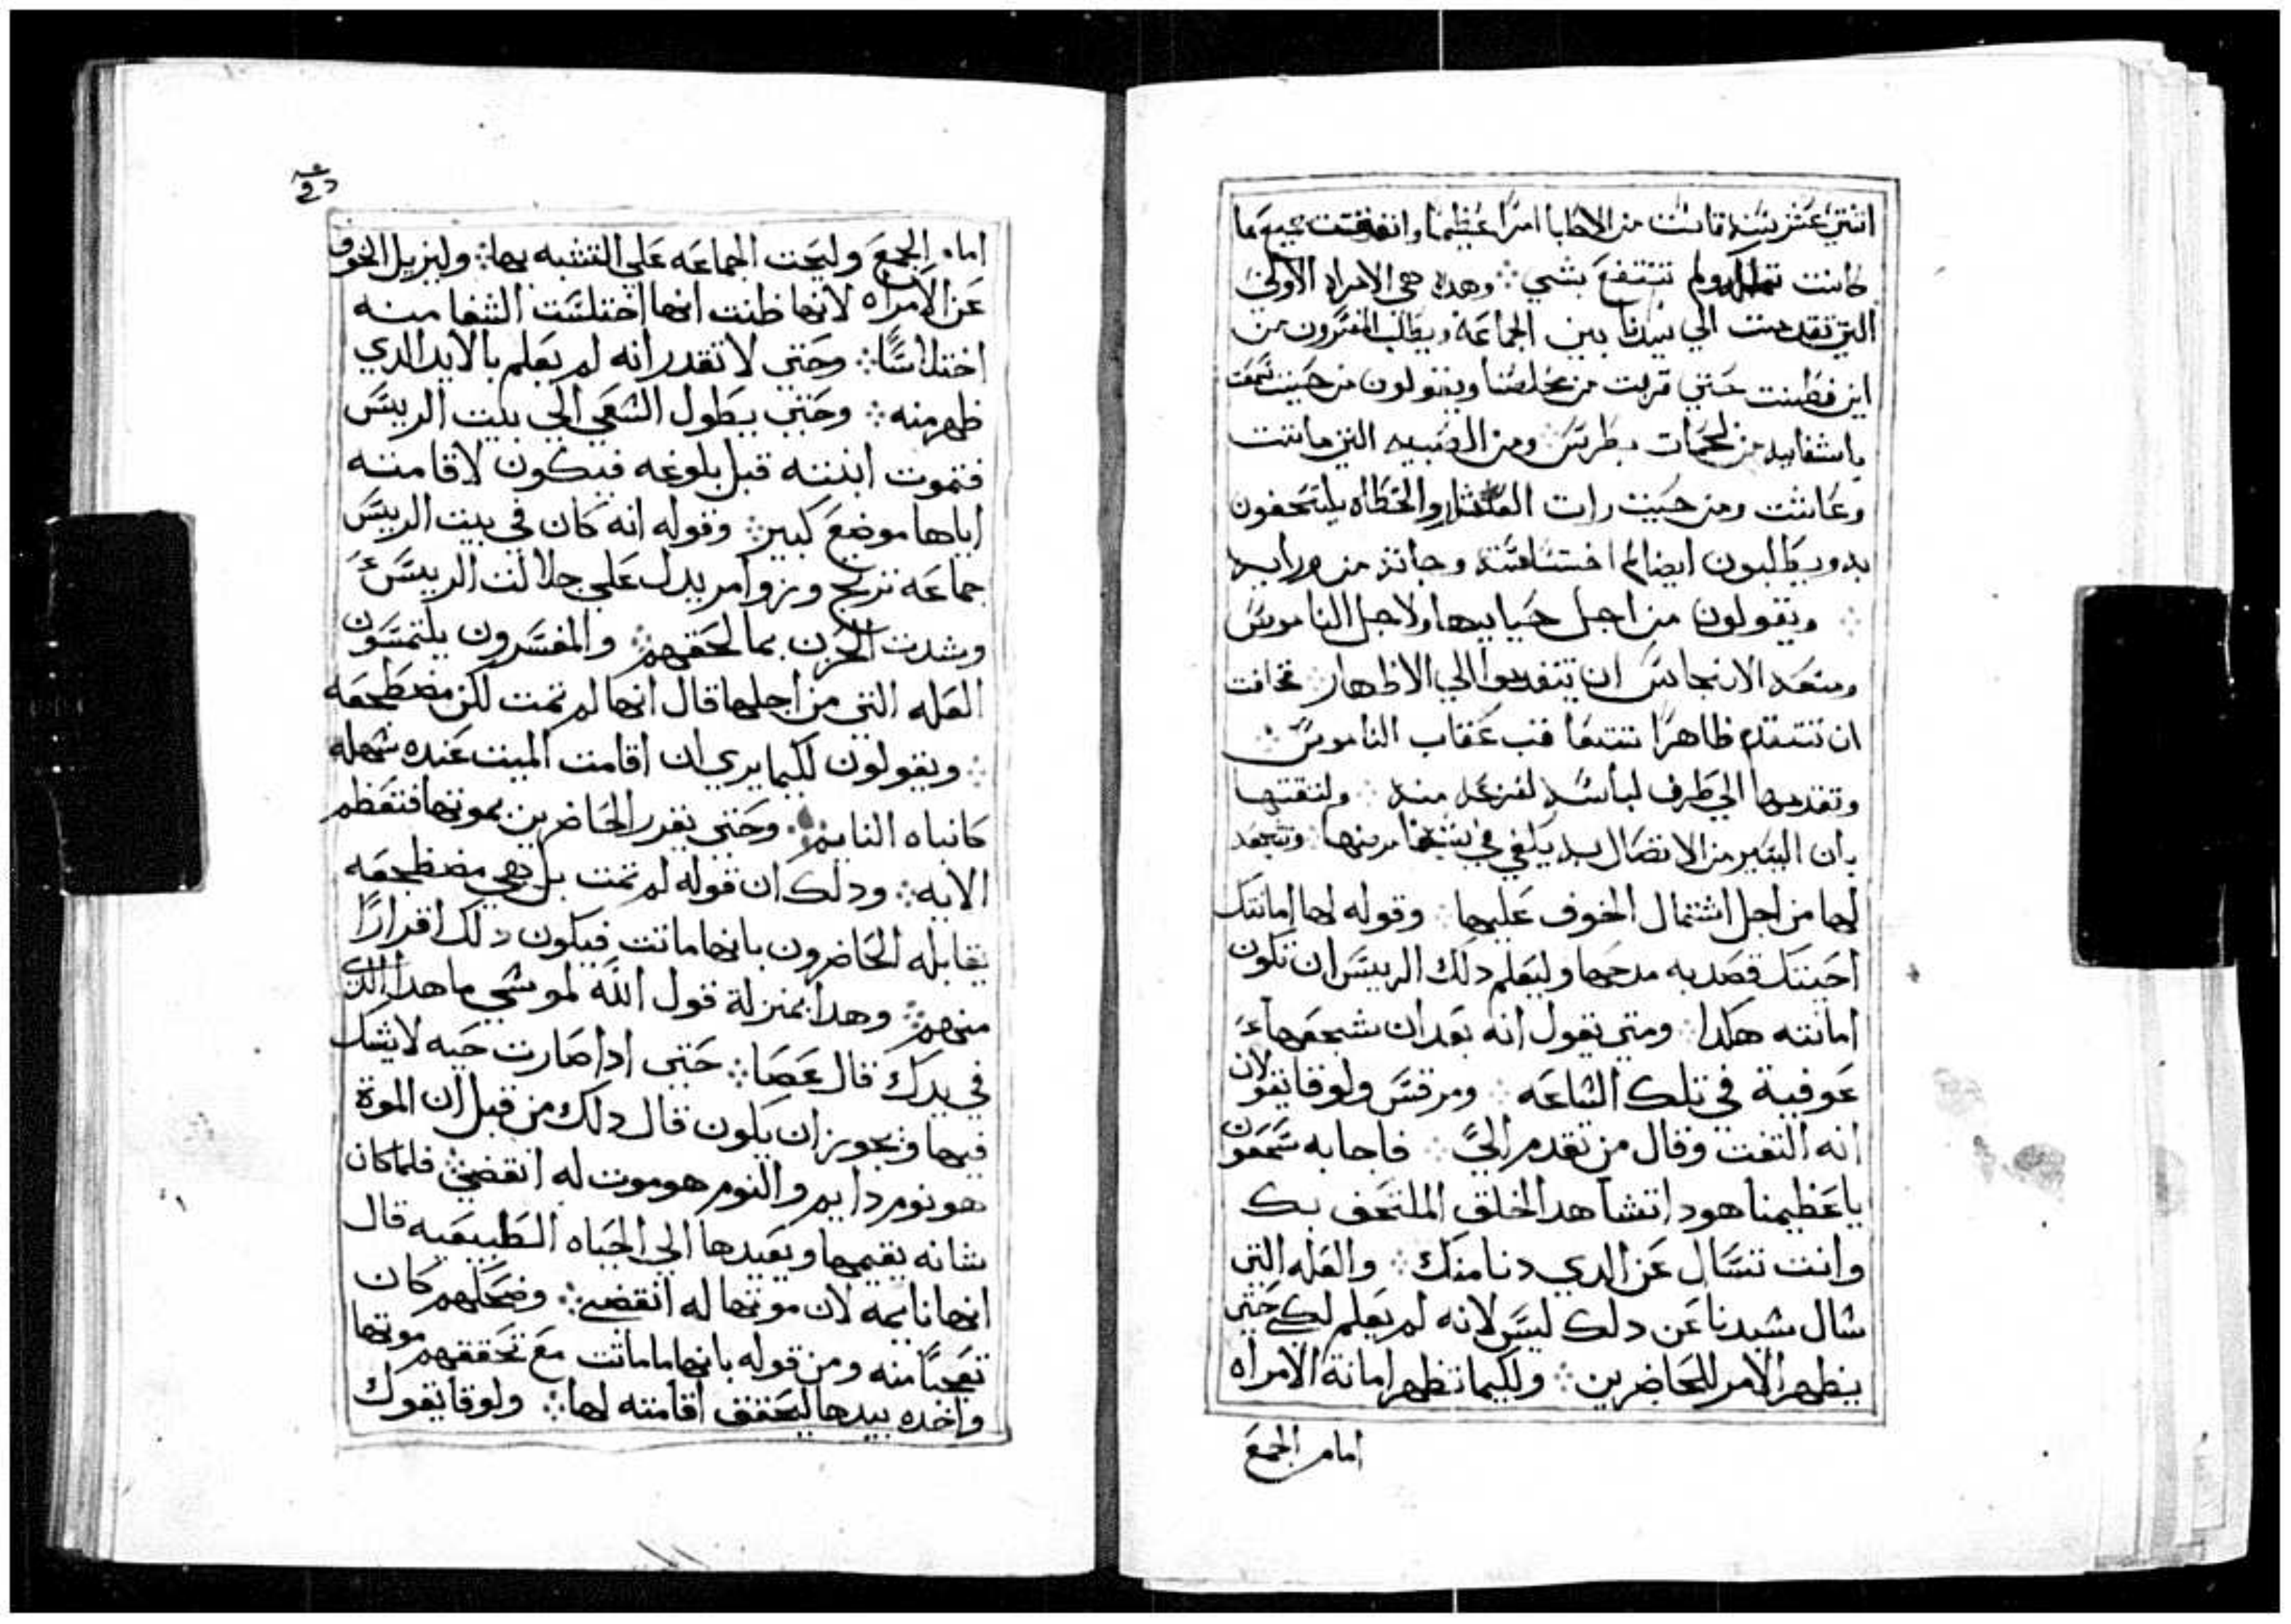 اتنتي عشر سنه قاست من الاطبا امرًا عظيمًا وانفقت جميع ما
كانت تملك ولم تنتفع بشي ⁘ وهده هي الامراه الاولي
التي تقدمت الي سيدنا بين الجماعه ويطلب المفسرون من
اين فطنت حتي قربت من مخلصنا ويقولون من حيت سمعت
باشفايه من لحمات بطرس ومن الصبيه التي ماتت
وعاشت ومن حيت رات العشار والخطاه يلتحفون
به ويطلبون ايضا لم اختشاقته وجاته من ورايه
⁘ ويقولون من اجل حيايها ولاجل الناموس
ومنعه الانجاس ان يتقدموا الي الاظهار ⁘ تخافت
ان تتقدم ظاهرًا تتعاقب عقاب الناموس ⁘
وتقدمها الي طرف لباسه لفزعه منه ⁘ ولتقتها
بان اليسير من الاتصال به يكفي في شفا مرضها ⁘ وتشجعه
لها من اجل اشتمال الخوف عليها ⁘ وقوله لها امانتك
احيتك قصد به مدحها وليعلم دلك الرييس ان تكون
امانته هكدا ⁘ ومتي يقول انه بعد ان شجعها
عوفية في تلك الساعه ⁘ ومرقس ولوقا يقولان
انه التفت وقال من تقدم اليّ ⁘ فاجابه شمعون
ياعظيمنا هودا تشاهد الخلق الملتحف بك
وانت تسال عن الدي دنا منك ⁘ والعله التي
سال سيدنا عن دلك ليس لانه لم يعلم لكن حتي
يظهر الامر للحاضرين ⁘ ولكيما تظهر امانة الامراه
امام الجمع
امام الجمع وليحت الجماعه علي التشبه بها ⁘ وليزيل الخوف
عن الامراه لانها ظنت انها اختلست الشفا منه
اختلاسًا ⁘ وحتي لا تقدر انه لم يعلم بالايد الدي
ظهر منه ⁘ وحتي يطول السعي الي بيت الرييس
فتموت ابنته قبل بلوغه فيكون لاقامته
اياها موضع كبير ⁘ وقوله انه كان في بيت الرييس
جماعه ترتج وزوامر يدل علي جلالت الرييس
وشدت الحزن بما لحقهم ⁘ والمفسرون يلتمسون
العله التي من اجلها قال انها لم تمت لكن مضطجعه
⁘ ويقولون لكيما يري ان اقامت الميت عنده سهله
كانباه النايم ⁘ وحتي يقرر الحاضرين بموتها فتعظم
الايه ⁘ ودلك ان قوله لم تمت بل هي مضطجعه
يقابله الحاضرون بانها ماتت فيكون دلك اقرارًا
منهم ⁘ وهدا بمنزلة قول الله لموسي ما هدا الدي
في يدك قال عصا ⁘ حتي ادا صارت حيه لا يشك
فيها ويجوز ان يكون قال دلك من قبل ان الموة
هو نوم دايم والنوم هو موت له انقضي ⁘ فلما كان
شانه يقيمها ويعيدها الي الحياه الطبيعيه قال
انها نايمه لان موتها له انقضي ⁘ وضحكهم كان
تعجبًا منه ومن قوله بانها ماماتت مع تحققهم موتها
واخده بيدها ليحقق اقامته لها ⁘ ولوقا يقول